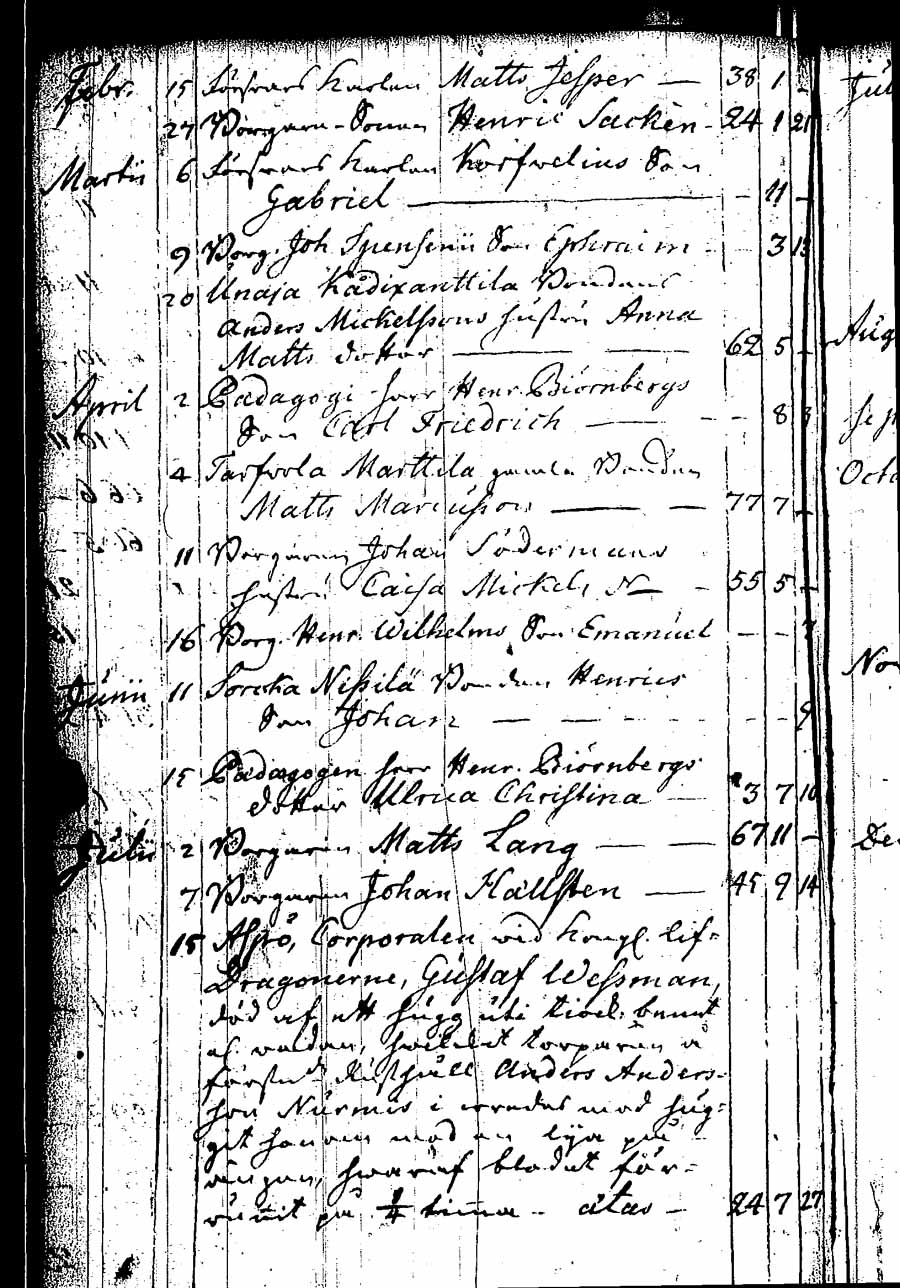 Febr. 15 Försvars Karlen Matts Jesper — 38 1 –
27 Borgare-Sonen Henric Sacken – 24 1 21
Martii 6 Försvars Karlen Son
Gabriel — – 11 –
9 Borg. Joh Son Ephraim – – 3 13
20 Unaja Kådixanttila Bondens
Anders Mickelssons Hustru Anna
Matts dotter — 62 5 –
April 2 Pædagogi Herr Henr. Biörnbergs
Son Carl Friedrich — – – 8 3
4 Tarfvola Marttila gamle Bonden
Matts Marcusson — 77 7 –
11 Borgaren Johan Södermans
Hustru Caisa Mickels N – 55 5 –
16 Borg. Henr. Wilhelms Son Emanuel – – 7
Junii 11 Sorcka Nissilä Bonden Henrics
Son Johan — – – 9
15 Pædagogen Herr Henr. Biörnbergs
dotter Ulrica Christina — 3 7 10
Julii 2 Borgaren Matts Lang — 67 11 –
7 Borgaren Johan Hällsten — 45 9 14
15 Aspö, Corporalen wid Kongl. Lif-
Dragonerne, Gustaf Wessman,
död af ett hugg uti benet
af, hwilket torparen å
Rusthåll Anders Anders-
son Nurmis i wredes mod hug-
git honom med en lija på
ängen, hwaraf blodet för-
runnit på ¼ tima – ätas – 24 7 27
Jul
Aug
Sep
Octo
Nov
Dec